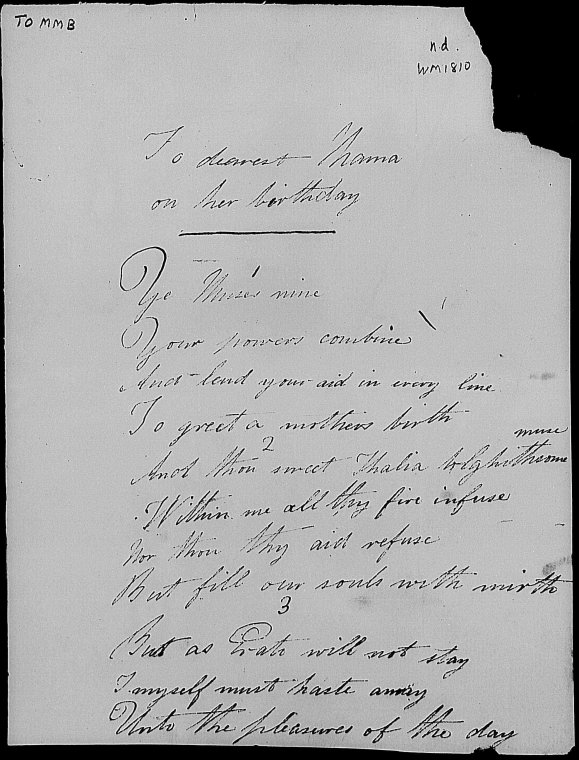 TO MMB
n.d.
WM1810
To dearest Mama
on her birthday
1
Ye Muses nine
Your powers combine
And lend your aid in every line
To greet a mothers birth
2
muse
And thou sweet Thalia
Within me all thy fire infuse
Nor thou thy aid refuse
But fill our souls with mirth
3
But as Erato will not stay
I myself must haste away
Unto the pleasures of the day